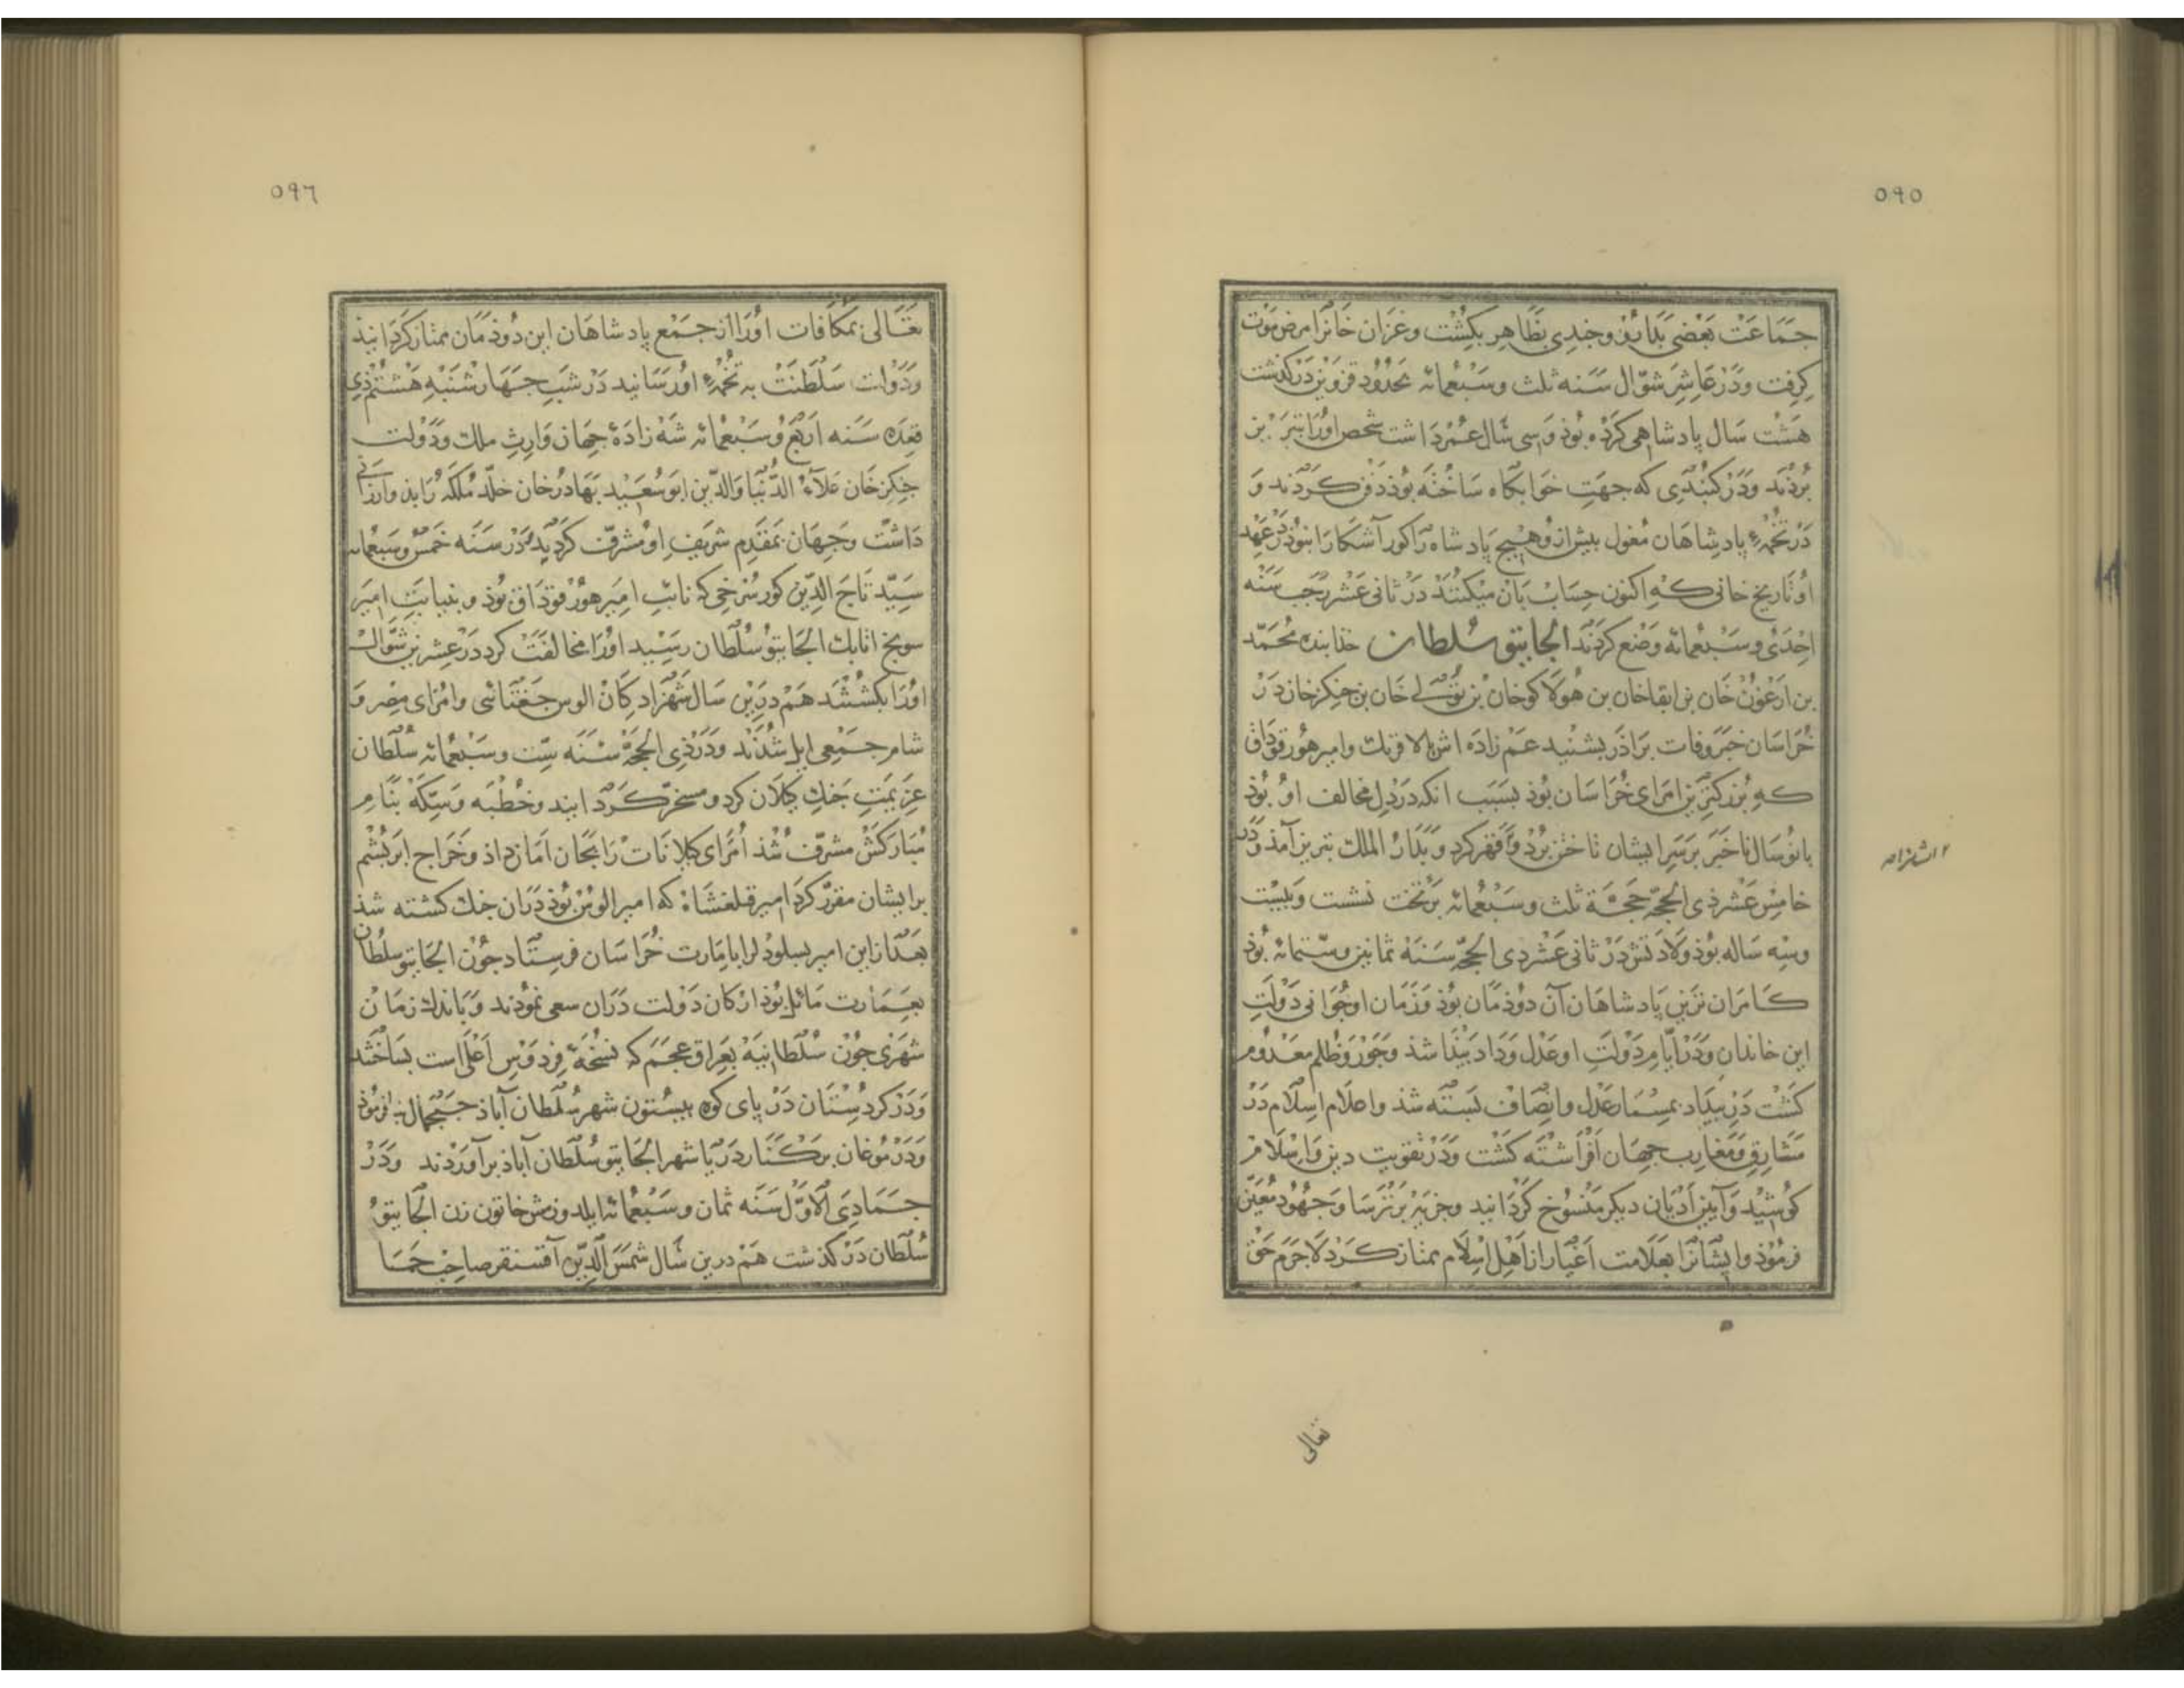 ٥٩٥
جماعت بعضی بدارو و چندی بظاهر بکشت و غزان خانرا مرض موت
کرفت و در عاشر شوال سنه ثلث و سبعمائه بحدود قزوین درکذشت
هشت سال پادشاهی کرده بوذ و سی سال عمر داشت شخص اورا بتبریز
بردند و در کنبدی که جهت خوابکاه ساخته بوذ دفن کردند و
در تخمهٔ پادشاهان مغول بیش ازو هیچ پادشاه را کور آشکارا نبوذ در عهد
او تاریخ خانی که اکنون حساب بان میکنند در ثانی عشر رجب سنه
احدی و سبعمائه وضع کردند الجایتو سلطان خذابنده محمد
بن ارغون خان بن ابقاخان بن هولاکوخان بن تولی خان بن جنکزخان در
خراسان خبر وفات براذر بشنید عم زاده اش الافرنک و امیر هورقوداق
که بزرکترین امرای خراسان بوذ بسبب انکه در دل مخالف او بوذ
یا نوسال ناخبر بر سر ایشان تاختن برد و قهر کرد و بدار الملک تبریز آمذ و در
خامس عشر ذی الحجه حجة ثلث و سبعمائه بر تخت نشست و بیست
وسه ساله بوذ ولادتش در ثانی عشر ذی الحجه سنه ثمانین و ستمائه بوذ
کامران ترین پادشاهان آن دوذمان بوذ و زمان او جوانی دولت
این خاندان و در ایام دولت او عدل و داد بیذا شذ و جور و ظلم معدوم
کشت در بیداد بمسمار عدل و انصاف بسته شذ و اعلام اسلام در
مشارق و مغارب جهان افراشته کشت و در تقویت دین و اسلام
کوشید و آیین ادیان دیکر منسوخ کردانید و جزیه بر ترسا و جهود معین
فرموذ و ایشانرا بعلامت اغیار از اهل اسلام ممتاز کرد لاجرم حق
تعالی
٥٩٦
تعالی بمکافات اورا از جمع پادشاهان این دوذمان ممتاز کردانیذ
و دولت سلطنت به تخمهٔ او رسانید در شب جهارشنبه هشتم ذی
قعده سنه اربع و سبعمائه شه زادهٔ جهان وارث ملک و دولت
جنکزخان علاء الدنیا والدین ابوسعید بهادرخان خلد ملکه را بذو ارزانی
داشت و جهان بمقدم شریف او مشرف کردید در سنه خمس و سبعمائه
سید تاج الدین کور سرخی که نائب امیر هورقوداق بوذ و بنیابت امیر
سونج اتابک الجایتو سلطان رسید اورا مخالفت کرد در عشرین شوال
اورا بکشتند هم درین سال شهزادکان الوس جغتائی و امرای مصر و
شام جمعی ایل شدند و در ذی الحجه سنه ست و سبعمائه سلطان
عزیمت جنک کیلان کرد و مسخر کردانید و خطبه و سکه بنام
مبارکش مشرف شذ امرای کیلانات را بجان امان داذ و خراج ابریشم
بر ایشان مقرر کرد امیر قتلغشاه که امیر الوس بوذ دران جنک کشته شذ
بعد از این امیر یساول را بامارت خراسان فرستاد جون الجایتو سلطان
بعمارت مائل بوذ ارکان دولت دران سعی نموذند و باندک زمان
شهری جون سلطانیه بعراق عجم که نسخهٔ فردوس اعلی است بساختند
و در کردستان در پای کوه بیستون شهر سلطان آباذ جمجمال فرموذ
و در موغان بر کنار دریا شهر الجایتو سلطان آباذ برآوردند و در
جمادی الاول سنه ثمان و سبعمائه ایلدوزمش خاتون زن الجایتو
سلطان درکذشت هم درین سال شمس الدین آقسنقر صاحب حما